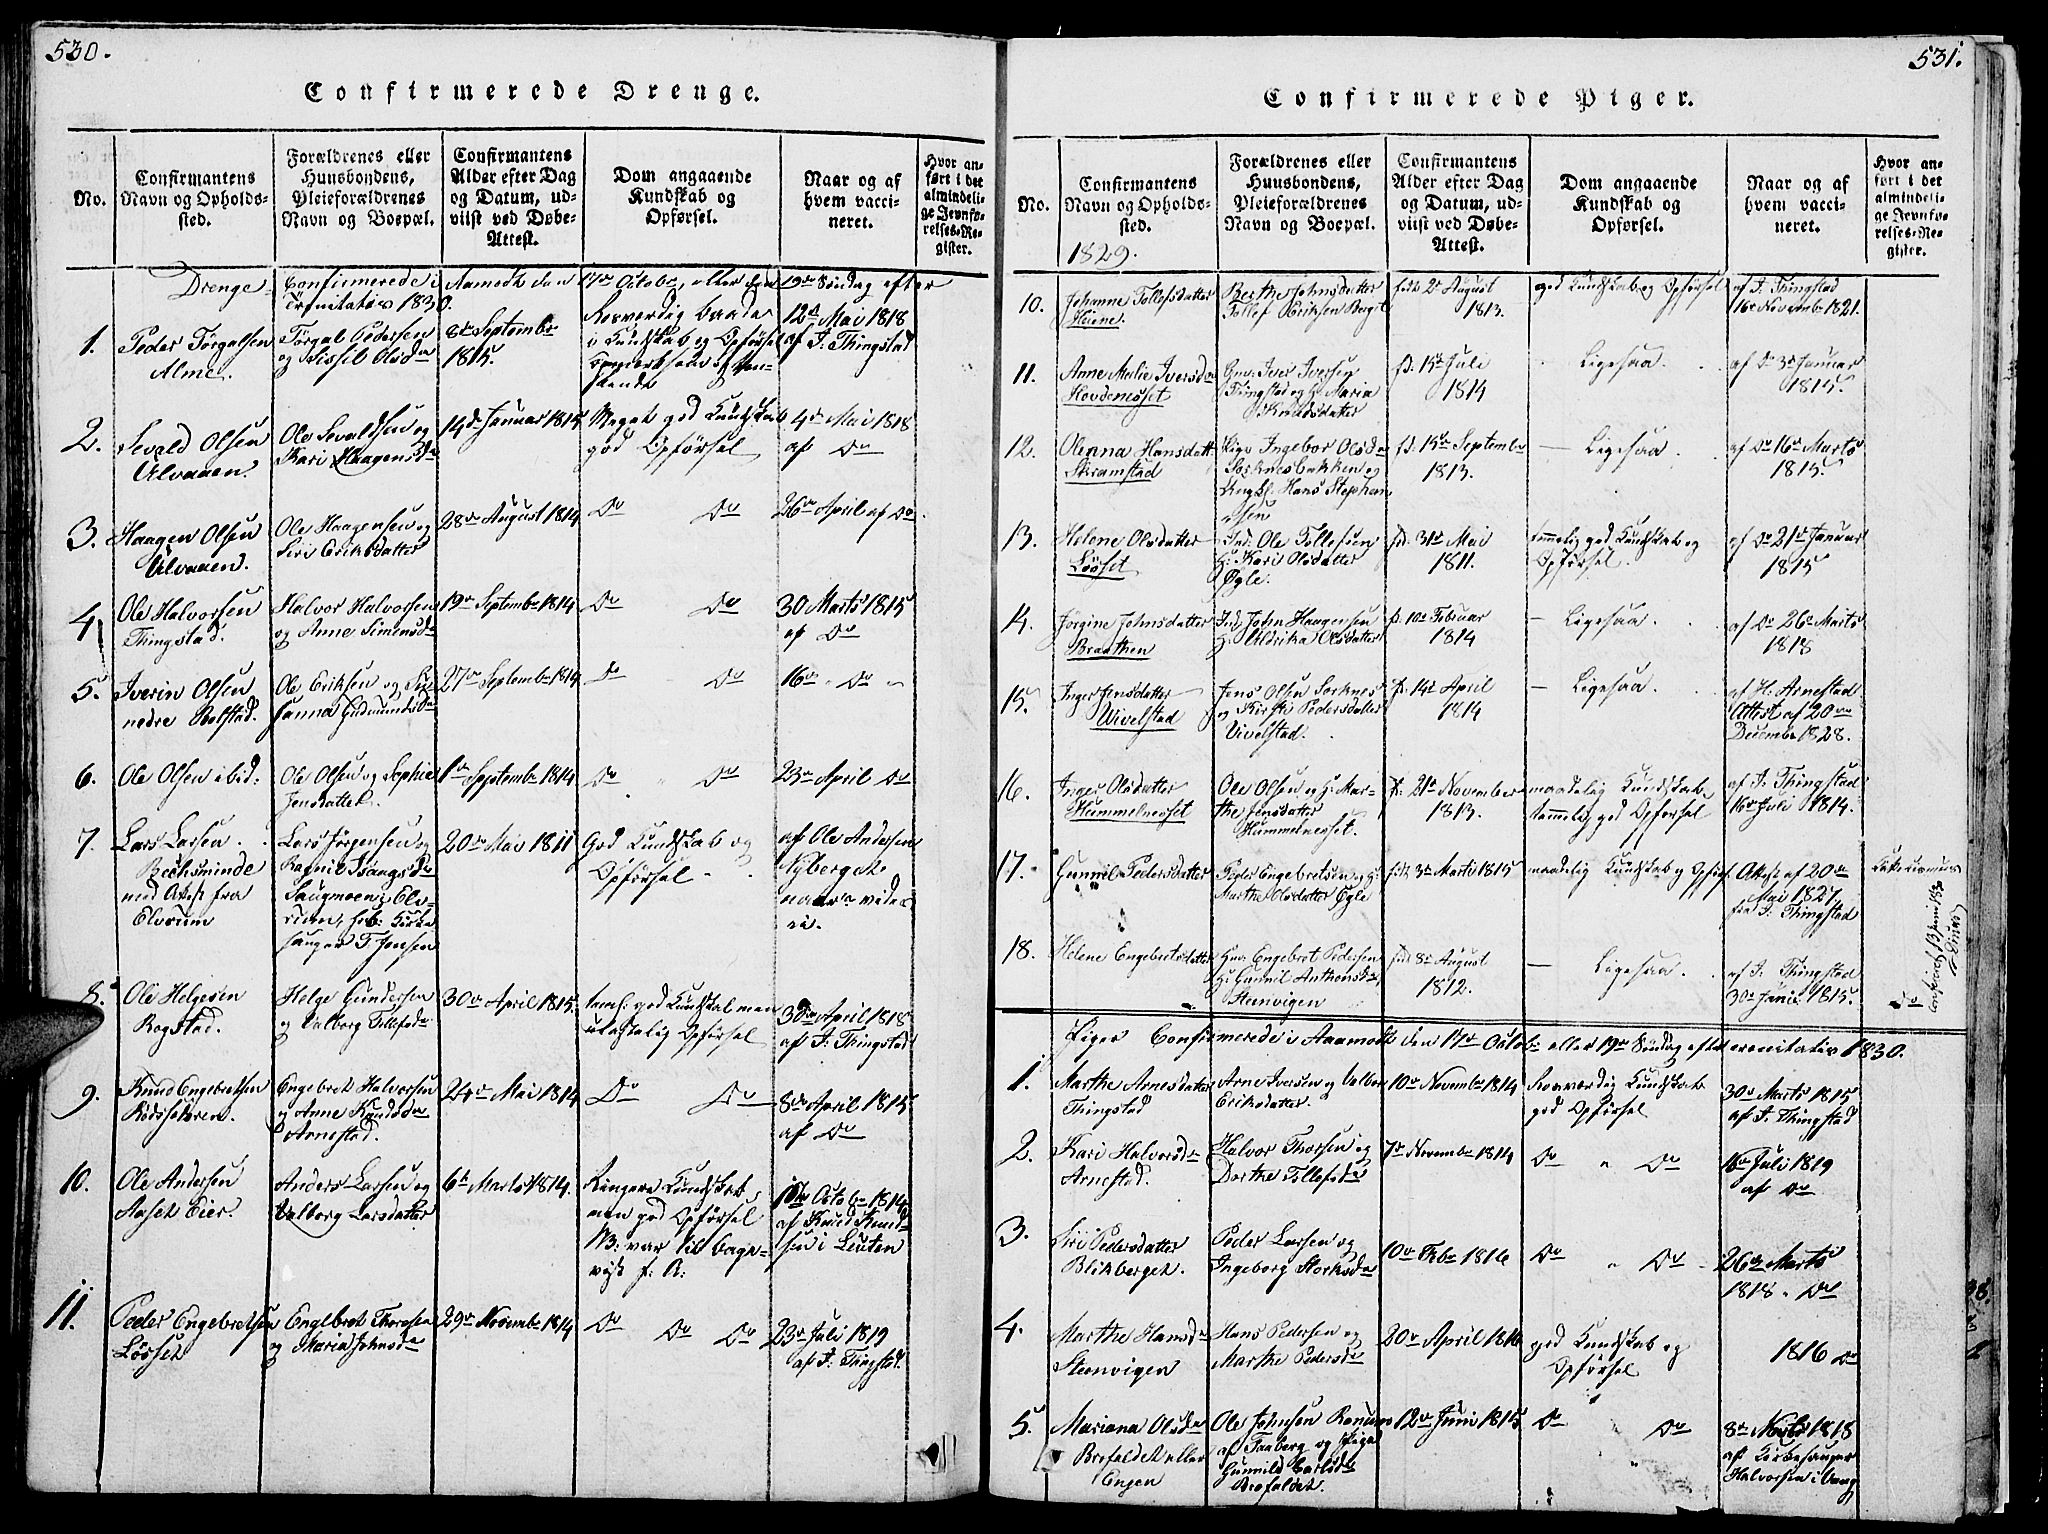 530.
Confirmerede Drenge.
No.
Confirmantens
Navn og Opholds-
sted.
Forældrenes eller
Huusbondens,
Pleieforældrenes
Navn og Boepæl.
Confirmantens
Alder efter Dag
og Datum, ud-
viist ved Døbe-
Attest.
Dom angaaende
Kundskab og
Opførsel.
Naar og af
hvem vacci-
neret.
Hvor an-
ført i det
almindeli-
ge Jevnfø-
relses-Re-
gister.
Drenge Confirmerede i Aamodt den 17de Octobr, eller den 19de Søndag efter
Trinitatis 1830.
1.
Peder Törgalsen
Alme.
Törgal Pedersen
og Sissel Olsda
8de Septembr
1815.
Rosverdig baade
i Kundskab og Opførsel
12te Mai 1818
af I: Thingstad
2.
Sevald Olsen
Ulvaaen.
Ole Sevaldsen og
Kari Haagensda
14de Januar 1815
Meget god Kundskab
god Opførsel
4de Mai 1818
af Do
3.
Haagen Olsen
Ulvaaen.
Ole Haagensen og
Siri Eriksdatter
28de August 1814
Do Do
26de April af Do
4.
Ole Halvorsen
Thingstad.
Halvor Halvorsen
og Anne Simensda
19de Septembr 1814
Do Do
30 Marts 1815
af Do
5.
Iverin Olsen
nedre Rolstad.
Ole Eriksen og Su-
sanna Gudmundsda
27de Septembr 1814
Do Do
16de Do
6.
Ole Olsen ibid:
Ole Olsen og Sophie
Jensdatter.
1de Septembr 1814
Do Do
23de April Do
7.
Lars Larsen
Bechsminde
med Attest fra
Elverum
Lars Jørgensen og
Elv-
rum, hos Kirke
sanger T. Jensen
20de Mai 1811
God Kundskab og
Opførsel
af Ole Andersen
Nyberget
8.
Ole Helgesen
Rogstad.
Helge Gundersen
og Valborg Tollefsda
30de April 1815.
temel: god Kundskab men
ulastelig Opførsel
30de April 1818
af I: Thingstad
9.
Knud Engebretsen
Kidssæteren.
Engebret Halvorsen
og Anne Knudsda
Arnestad.
24de Mai 1814
Do Do
8de April 1815
af Do
10.
Ole Andersen
Aaset Eier.
Anders Larsen og
Valborg Larsdatter
6te Marts 1814.
Ringere Kundskab
men god Opførsel
NB: var til bage-
viist f: A:
Octobr 1814
af Knud Knud-
sen i Leuten
11.
Peder Engebretsen
Løsset
Engebret Thoresen
og Maria Johnsda
29de Novembr 1814
Do Do Do
23de Juli 1819
af I: Thingstad.
531.
Confirmerede Piger.
No.
Confirmantens
Navn og Opholds-
sted.
1829.
Forældrenes eller
Huusbondens,
Pleieforældrenes
Navn og Boepæl.
Confirmantens
Alder efter Dag
og Datum, ud-
viist ved Døbe-
Attest.
Dom angaaende
Kundskab og
Opførsel.
Naar og af
hvem vacci-
neret.
Hvor an-
ført i det
almindeli-
ge Jevnfø-
relses-Re-
gister.
10.
Johanne Tollefsdatter
Heiene.
Berthe Johnsdatter
Tollef Eriksen Berget
født 2de August
1813.
god Kundskab og Opførsel
af I: Thingstad
16de Novembr 1821.
11.
Anne Malie Iversda
Hovdenæsset
Gm: Iver Iversen
Tingstad og H: Maria
Knudsdatter
fd: 15de Juli
1814
— Ligesaa.
af Do 3de Januar
1815.
12.
Olenna Hansdatt
Skramstad
Pige Ingebor Olsda
Sorknesbakken og
Ungk: Hans Stephan
sen
fd: 15de Septembr
1813.
— Ligesaa.
af Do 16de Marts
1815.
13.
Helene Olsdatter
Løsset
Ind: Ole Tollefsen
H: Kari Olsdatter
Øgle.
fd: 31te Mai
1811.
temelig god Kundskab og
Opførsel.
af Do 21de Januar
1815
14.
Jørgine Johnsdatter
Braathen
Ind: John Haagensen
H: Uldrika Olsdatter
f: 10de Februar
1814
— Ligesaa.
af Do 26de Marts
1818
15.
Inger Jensdatter
Wivelstad
Jens Olsen Sorknes
og Kirsti Pedersdatter
Vivelstad.
f: 14de April
1814
— Ligesaa.
af H: Arnestad
Attest af 20de
Decembr 1828.
16.
Inger Olsdatter
Hummelnesset
Ole Olsen og H: Mar-
the Jensdatter
Hummelnesset.
f: 21de November
1813.
maadelig Kundskab
temmelig god Opførsel
af I: Thingstad
16de Juli 1814.
17.
Gunnil Pedersdatter
Peder Engebretsen og H:
Marthe Olsdatter Øgle
født 3de Marts 1815
maadelig Kundskab og Opførs
Attest af 20de
Mai 1827
fra I: Thingstad
18.
Helene Engebretsdatter
Gm: Engebret Pedersen
H: Gunnil Anthonsda
Steenvigen
født 8de August
1812.
— Ligesaa.
af I: Thingstad
30te Junii 1815.
Do
Piger Confirmerede i Aamodt den 17de Octobr eller 19de Søndag efter Trinitatis 1830.
1.
Marthe Arnesdatter
Thingstad
Arne Iversen og Valbor
Eriksdatter.
10de Novembr 1814
Rosværdig Kundskab
god Opførsel
30te Marts 1815
af I: Thingstad
2.
Kari Halvorsda
Arnestad.
Halvor Thorsen og
Dorthe Tollefsda
7de Novembr 1814
Do Do
16de Juli 1819
af Do
3.
Siri Pedersdatter
Blikberget.
Peder Larsen og
Ingeborg Storksda
10de Febr 1816
Do Do
26de Marts
1818. Do
4.
Marthe Hansda
Steenvigen
Hans Pedersen og
Marthe Pedersda
20de April 1816
god Kundskab og
Opførsel
1816 Do
5.
Mariana Olsda
Brefaldet eller
Engen
Ole Johnsen Ronum
af Faaberg og Pige
Gunnild Carlsda
Brefaldet.
12de Juni 1815
Do Do
8de Marts 1818
af Kirkesanger
Halvorsen i Vang